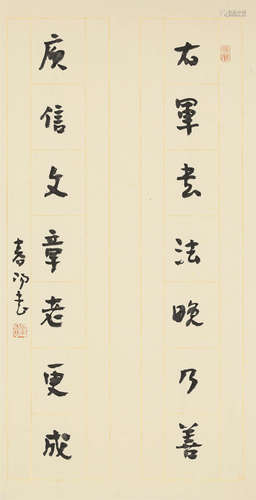 右軍書法晚乃善
庾信文章老更成